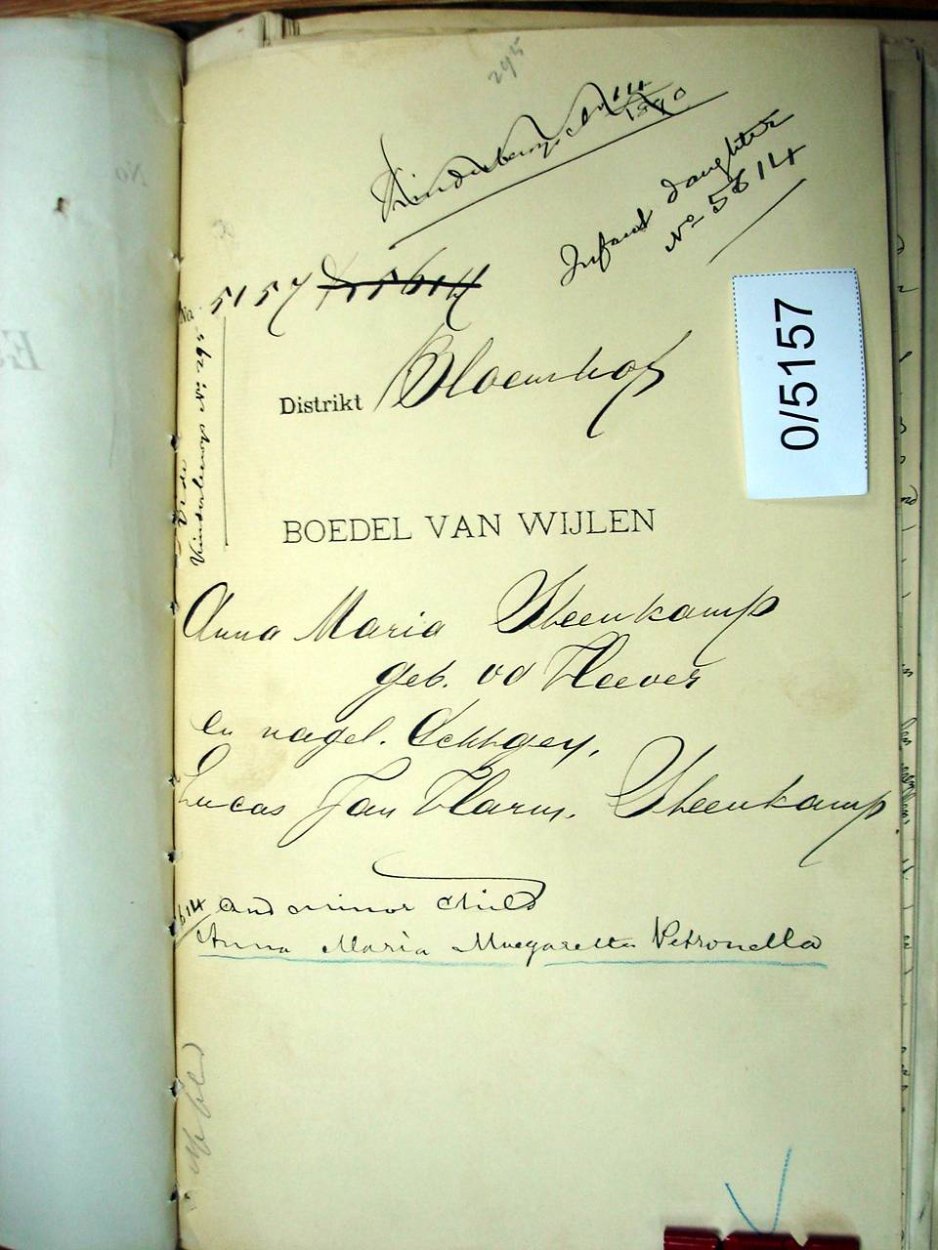 295
Kinderbewys No
Infant daughter
No 5614
No. 5157 5614
Vide
Kinderbewys No 295
Distrikt Bloemhof
0/5157
BOEDEL VAN WIJLEN
Anna Maria Steenkamp
geb. vd Heever
en nagel. Echtgen.
Lucas Jan Harm. Steenkamp
5614 and minor child
Anna Maria Margaretta Petronella